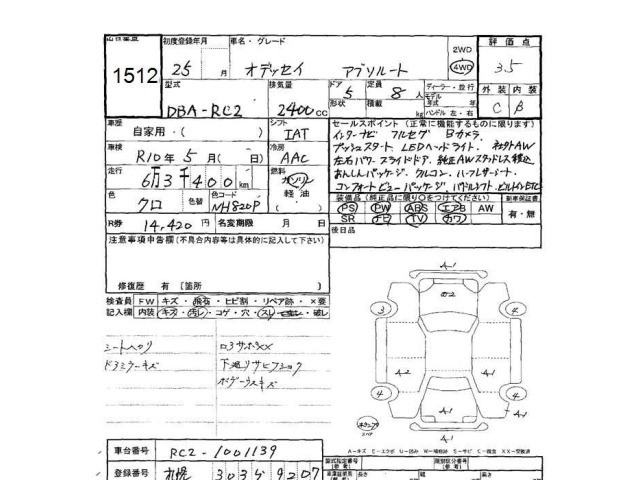 1512
初度登録年月 車名・グレード 2WD 評価点
25 月 オデッセイ アブソルート 4WD 3.5
型式 排気量 ドア 定員 外装 内装
DBA-RC2 2400cc 5 形状 8人 積載 kg ハンドル 左・右 C B
車歴 シフト セールスポイント(正常に機能するものに限ります)
自家用・( ) IAT インターナビ フルセグ Bカメラ
車検 冷房 プッシュスタート LEDヘッドライト 社外AW
R10年 5月( 日) AAC 左右パワースライドドア 純正AWスタッドレス積込
走行 燃料 あんしんパッケージ クルコン ハーフレザーシート
6万3千400km ガソリン 軽油 コンフォートビューパッケージ パドルシフト ビルトインETC
色 色コード 装備品(純正品に限り○をつけてください) 新車保証書
クロ NH820P ( ) PS PW ABS エアB AW 有・無
R券 14,420円 名変期限 月 日 SR ナビ TV カワ
注意事項申告欄(不具合内容等は具体的に記入して下さい) 後日品
修復歴 有 [箇所 ]
検査員 FW キズ・飛石・ヒビ割・リペア跡・×要
記入欄 内装 キズ・汚レ・コゲ・穴・スレ・破レ
シートヘリ ロアサポXX
ドアミラーキズ 下廻りサビフショク
ボデー小キズ
A-1
B2
3 4
A-2 A-1
4 4
A-1
A-1
スペア
A-キズ E-エクボ U-凹み W-補修跡 S-サビ C-腐食 XX-交換済
車台番号 RC2-1001139
登録番号 札幌 303 ち 9207
型式指定番号 類別区分番号
長さ 幅 高さ